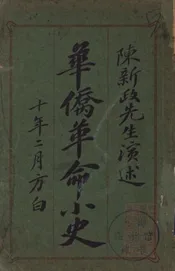 陳新政先生演述
華僑革命小史
十年二月方白